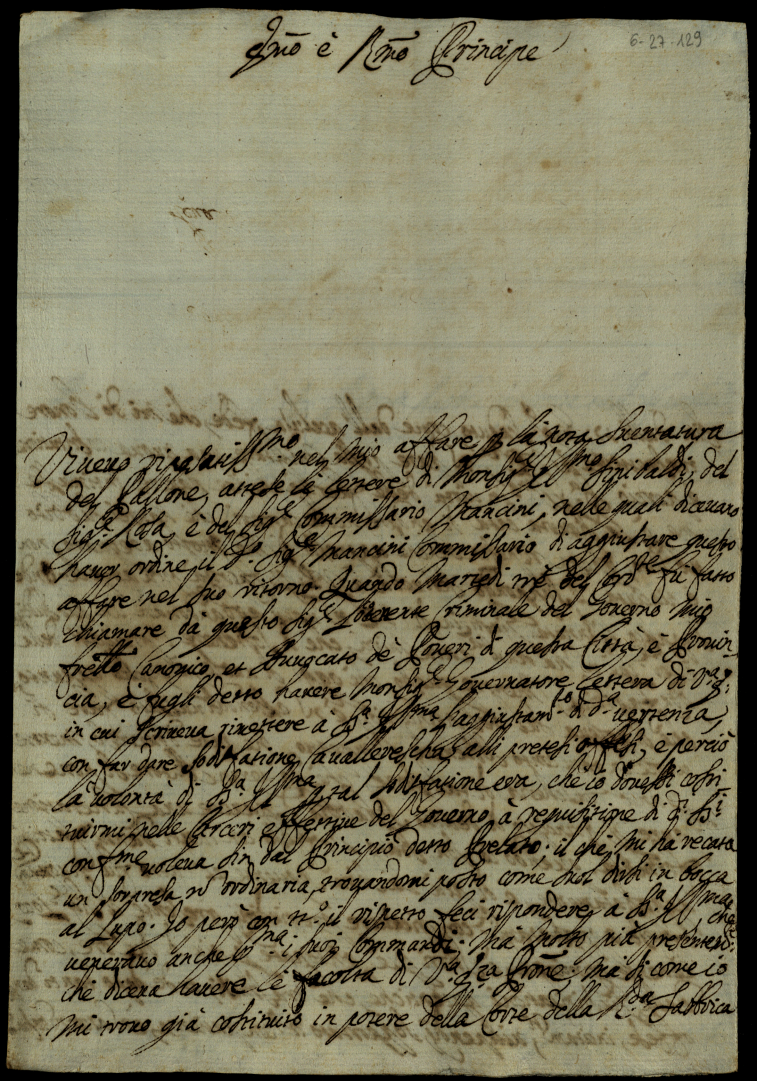 Emo è Rmo Principe
6-27-129
Vivevo riposatissmo nel mio affare p la nota sventatura
del Pallone, attese le lettere di Monsigre Illmo Sinibaldi, del
Sigre Rata, è del Sigre Commissario Mancini, nelle quali dicevano
haver ordine il Do Sigre Mancini Commissario di aggiustare questo
affare nel suo ritorno. Quando Martedi del fù fatto
chiamare da questo Sigre Locotente Criminale del Governo mio
frello Canonico, et Avvocato de Poveri di questa Città, è Provin
cia, è fugli detto havere Monsigre Governatore lettera di V.a
in cui scriveva rimettere à Sa. Illma l'aggiustamto di da vertenza,
con far dare sodisfatione Cavallerescha alli pretesi offesi, è perciò
la volontà di Sa. Illma tal sodisfatione era, che io dovessi costi
tuirmi nelle Carceri effettive del Governo à requisitione di
conforme voleva sin dal Principio detto Prelato. il che mi hà recata
un sorpresa nõ ordinaria, trovandomi posto come suol dirsi in bocca
al Lupo. Io però con tto. il rispetto feci rispondere, à Sa. Illma, che
veneravo anche i suoi Commandi. Mà molto più
che diceva havere le facoltà di V.a Prone: mà si come io
mi trovo già costituito in potere della Corte della Rda Fabbrica